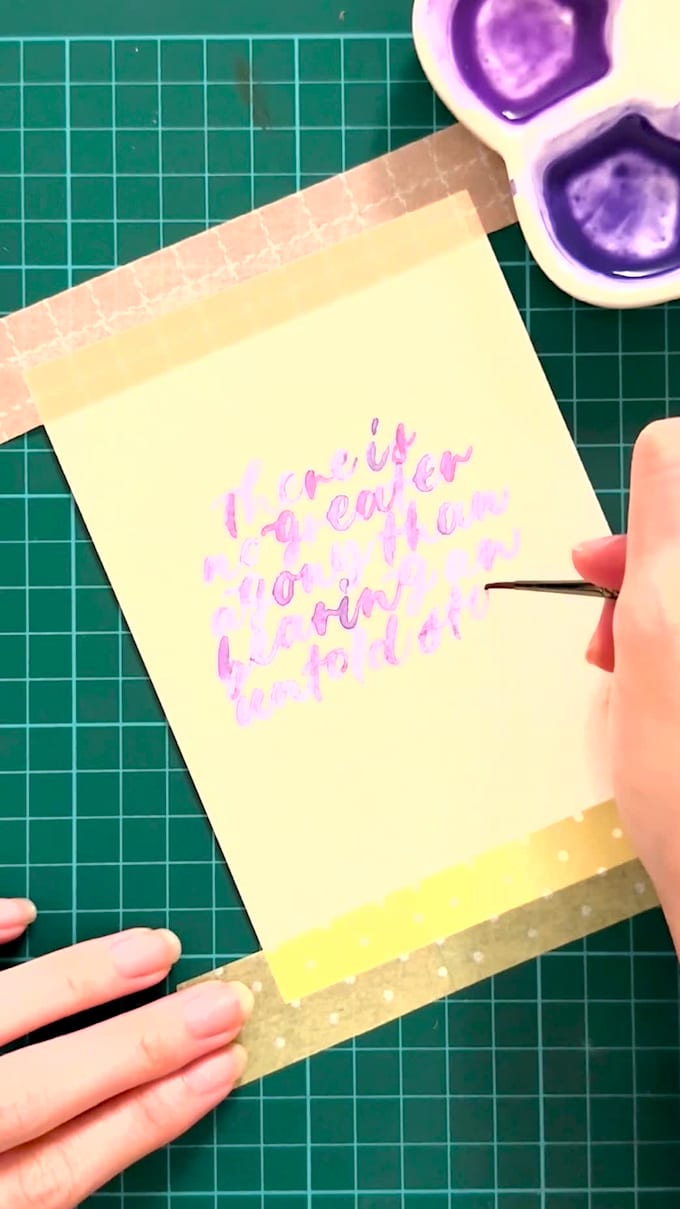 There is
no greater
agony than
bearing an
untold sto